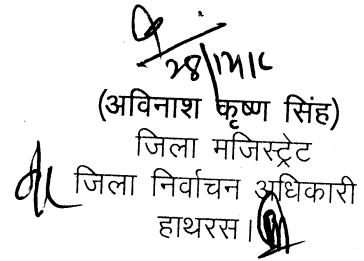 (अविनाश कृष्ण सिंह)
जिला मजिस्ट्रेट
जिला निर्वाचन अधिकारी
हाथरस।